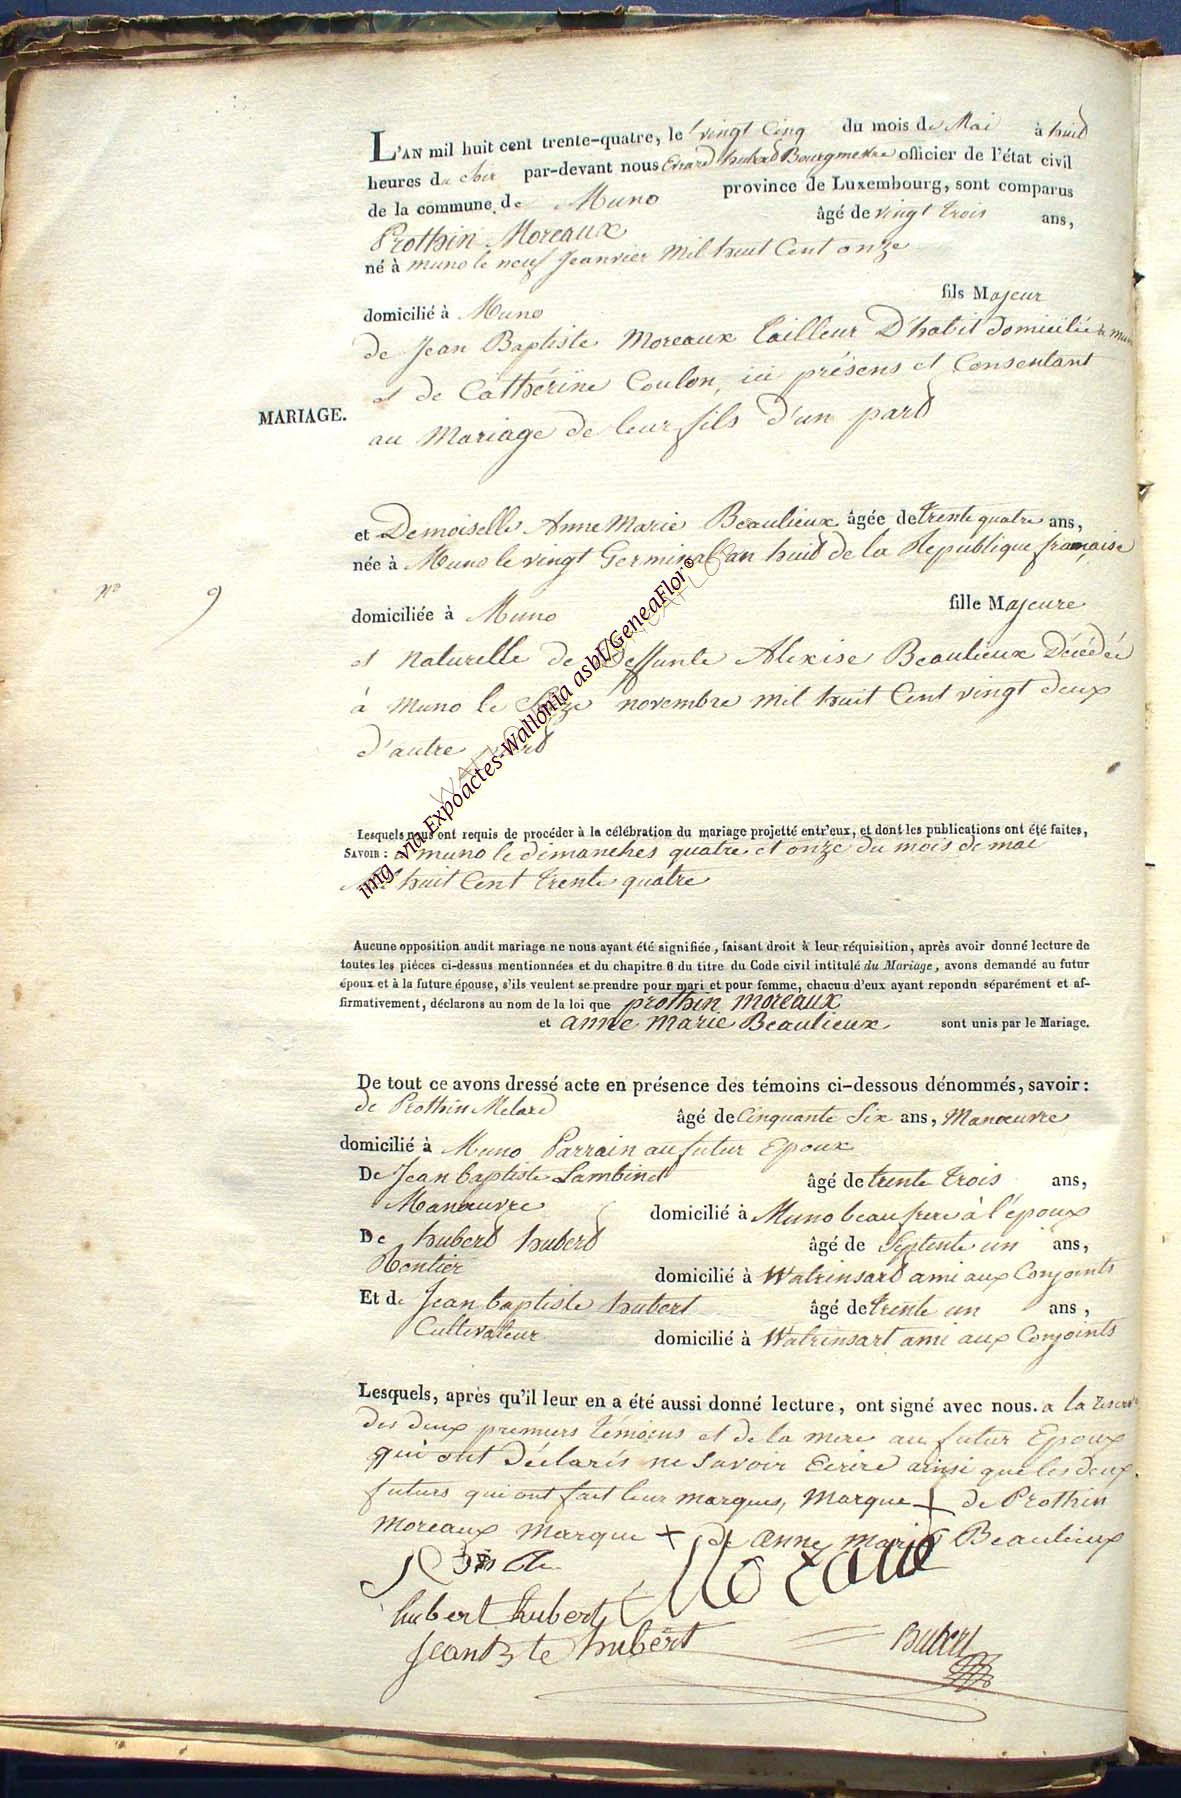 L'AN mil huit cent trente-quatre, le vingt Cinq du mois de Mai à huit
heures du soir par-devant nous Evrard hubert Bourgmettre officier de l'état civil
de la commune de Muno province de Luxembourg, sont comparus
Prothin Moreaux âgé de vingt trois ans,
né à muno le neuf Jeanvier Mil huit Cent onze
domicilié à Muno fils Majeur
de Jean Baptiste Moreaux Tailleur D'habit domicilié à muno
et de Cathérine Coulon, ici présens et Consentant
MARIAGE.
au Mariage de leur fils d'un part
et Demoiselle Anne Marie Beaulieux âgée de trente quatre ans,
née à Muno le vingt Germinal an huit de la Republique française
N° 9
domiciliée à Muno fille Majeure
et naturelle de Deffunte Alexise Beaulieux Décédée
à Muno le Seize novembre mil huit Cent vingt deux
d'autre part
Lesquels nous ont requis de procéder à la célébration du mariage projetté entr'eux, et dont les publications ont été faites,
SAVOIR : à muno le dimanches quatre et onze du mois de mai
Mil huit Cent trente quatre
Aucune opposition audit mariage ne nous ayant été signifiée, faisant droit à leur réquisition, après avoir donné lecture de
toutes les pièces ci-dessus mentionnées et du chapitre 6 du titre du Code civil intitulé du Mariage, avons demandé au futur
époux et à la future épouse, s'ils veulent se prendre pour mari et pour femme, chacun d'eux ayant repondu séparément et af-
firmativement, déclarons au nom de la loi que prothin moreaux
et anne marie Beaulieux sont unis par le Mariage.
De tout ce avons dressé acte en présence des témoins ci-dessous dénommés, savoir :
de Prothin Melard âgé de Cinquante Six ans, Manœuvre
domicilié à Muno Parrain au futur Epoux
De Jean baptiste Lambinet âgé de trente trois ans,
Manœuvre domicilié à Muno beau frere à l'époux
De hubert hubert âgé de Septente un ans,
Rentier domicilié à Watrinsart ami aux Conjoints
Et de Jean baptiste hubert âgé de trente un ans,
Cultivateur domicilié à Watrinsart ami aux Conjoints
Lesquels, après qu'il leur en a été aussi donné lecture, ont signé avec nous. a la reserve
des deux premiers témoins et de la mere au futur Epoux
qui ont Déclarés ne Savoir Ecrire ainsi que les deux
futurs qui ont fait leur marques, Marque + de Prothin
Moreaux Marque + de anne marie Beaulieux
Moraux
hubert hubert
Jean Bte hubert
hubert
img. via Expoactes-Wallonia asbl/GeneaFlor©